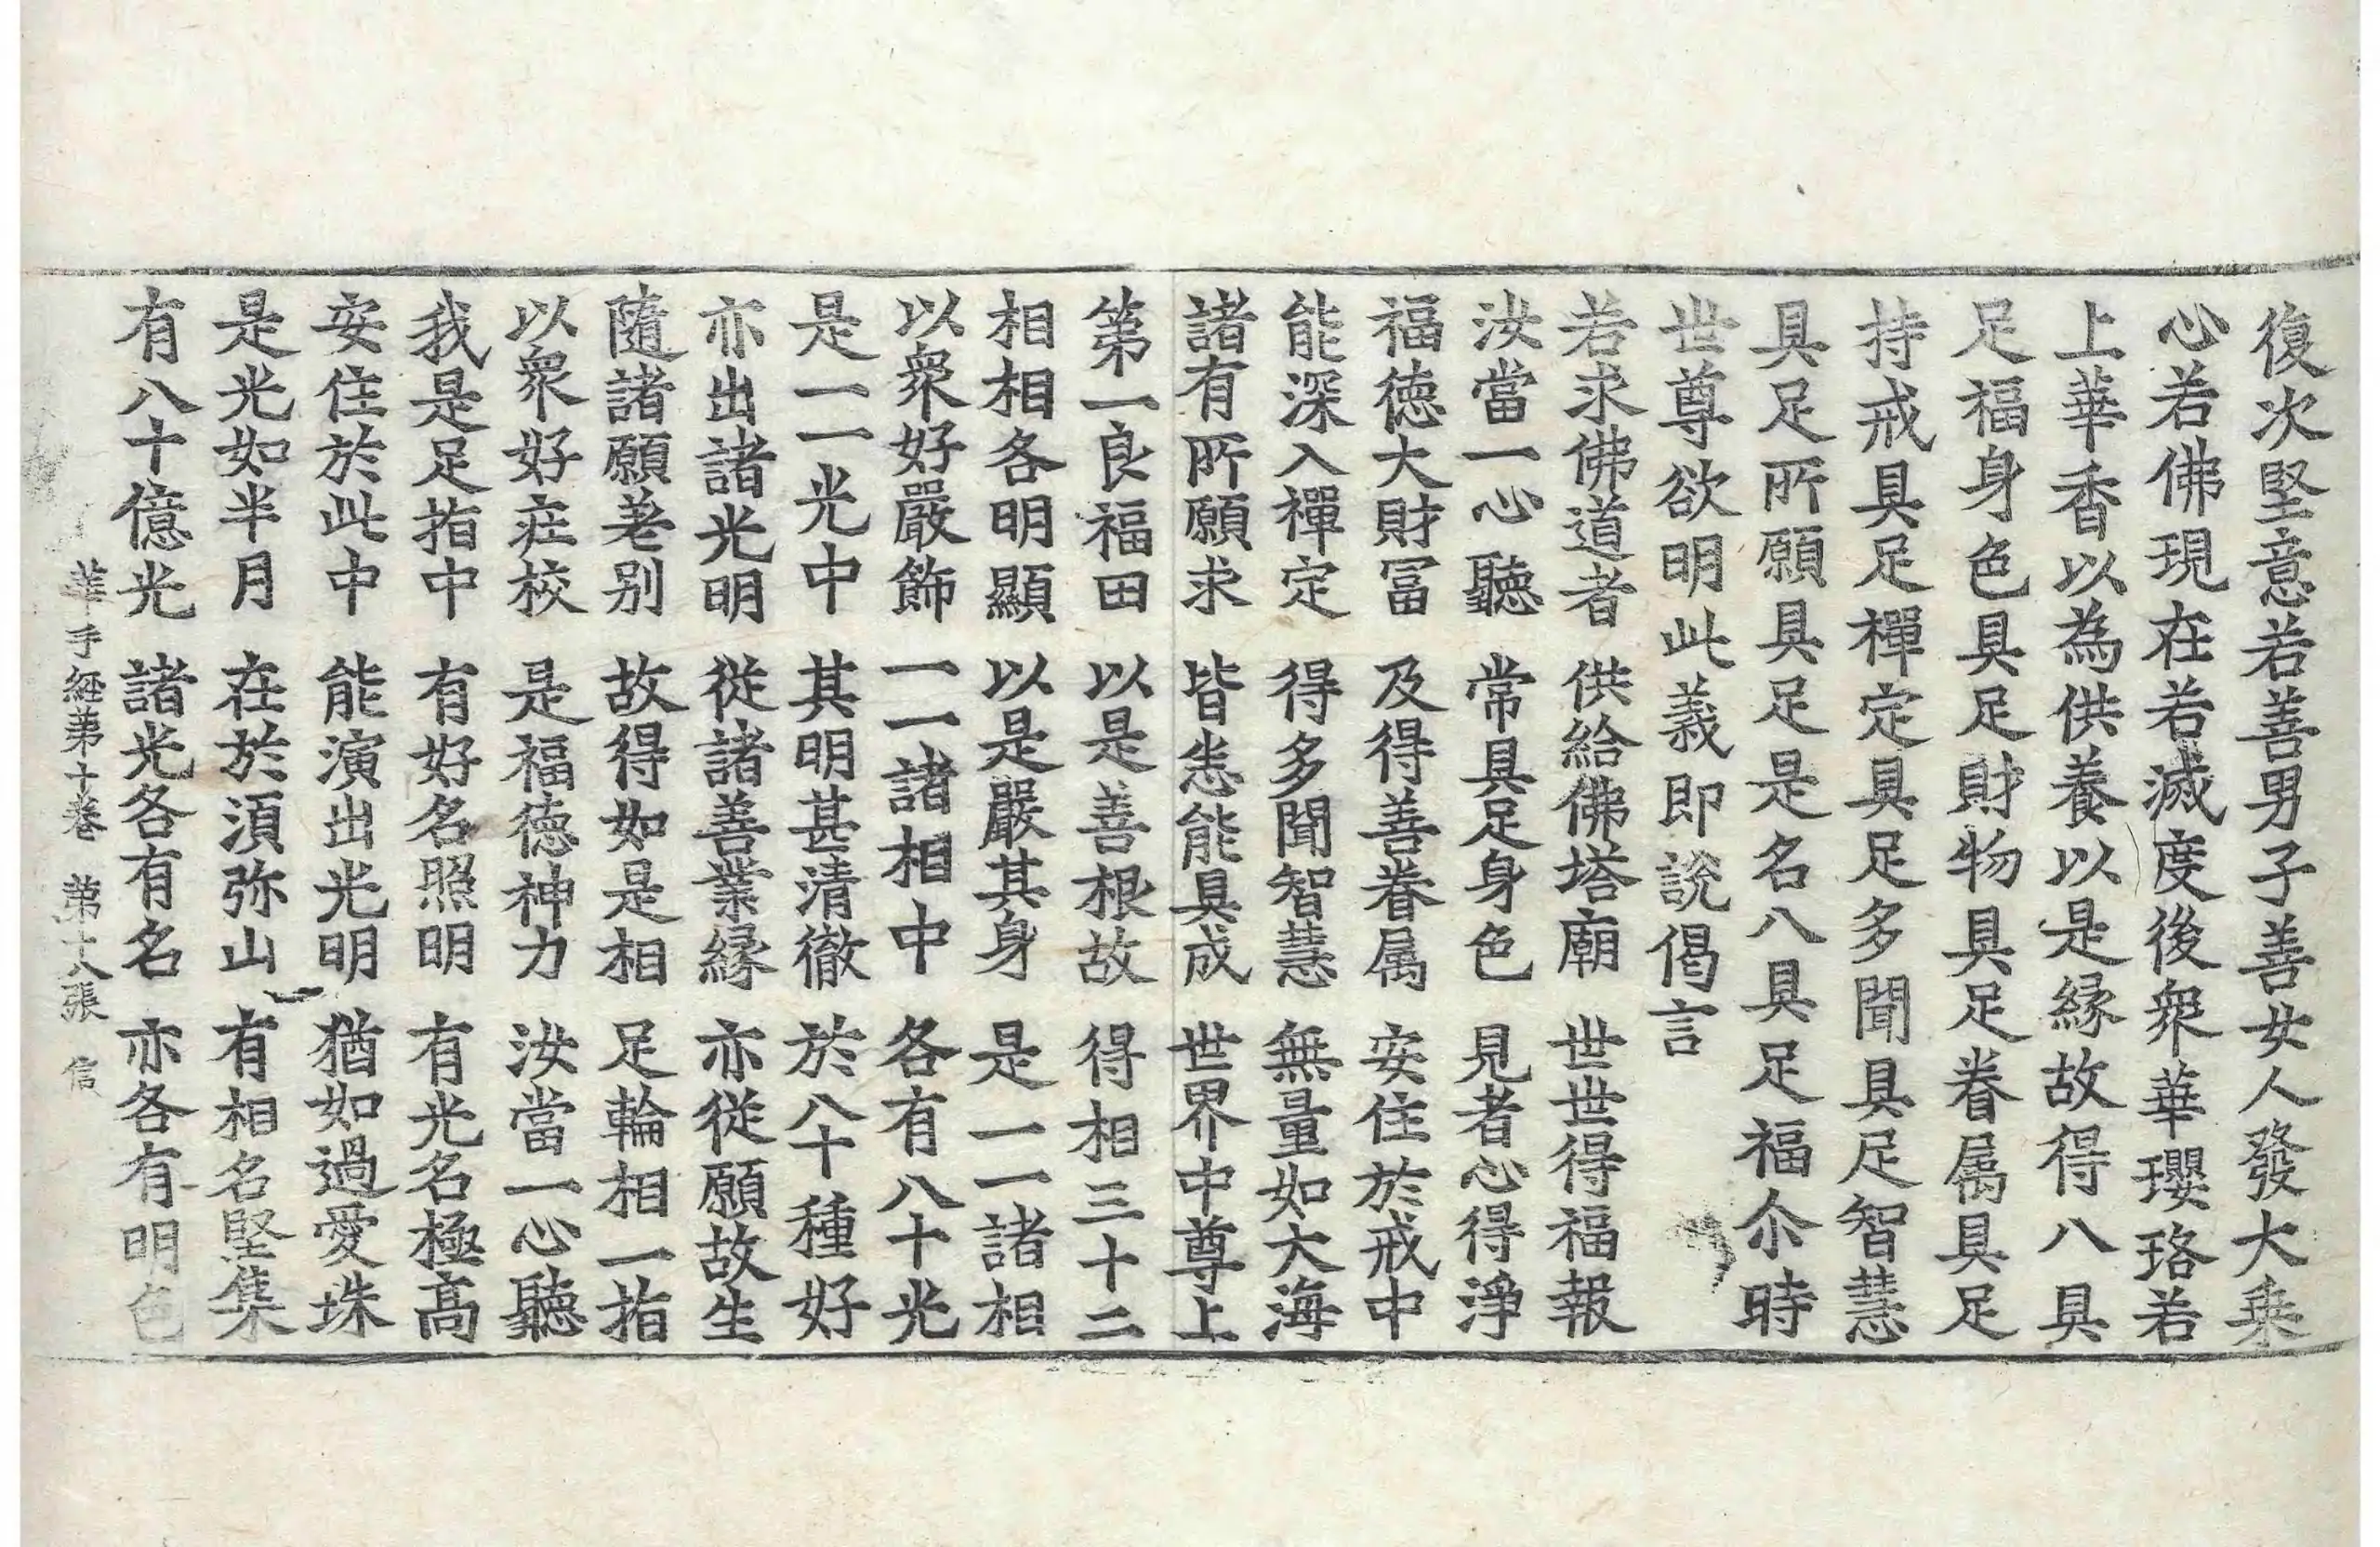 復次堅意若善男子善女人發大乗
心若佛現在若滅度後衆華瓔珞若
上華香以為供養以是縁故得八具
足福身色具足財物具足眷属具足
持戒具足禪定具足多聞具足智慧
具足所願具足是名八具足福尒時
世尊欲明此義即說偈言
若求佛道者　供給佛塔廟　世世得福報
汝當一心聽　常具足身色　見者心得淨
福徳大財冨　及得善眷属　安住於戒中
能深入禪定　得多聞智慧　無量如大海
諸有所願求　皆悉能具成　世界中尊上
第一良福田　以是善根故　得相三十二
相相各明顯　以是嚴其身　是一一諸相
以衆好嚴飾　一一諸相中　各有八十光
是一一光中　其明甚清徹　於八十種好
亦出諸光明　從諸善業縁　亦從願故生
隨諸願差別　故得如是相　足輪相一指
以衆好莊校　是福徳神力　汝當一心聽
我是足指中　有好名照明　有光名極高
安住於此中　能演出光明　猶如過愛珠
是光如半月　在於湏弥山　有相名堅集
有八十億光　諸光各有名　亦各有明色
華手經第十卷　第十八張　信